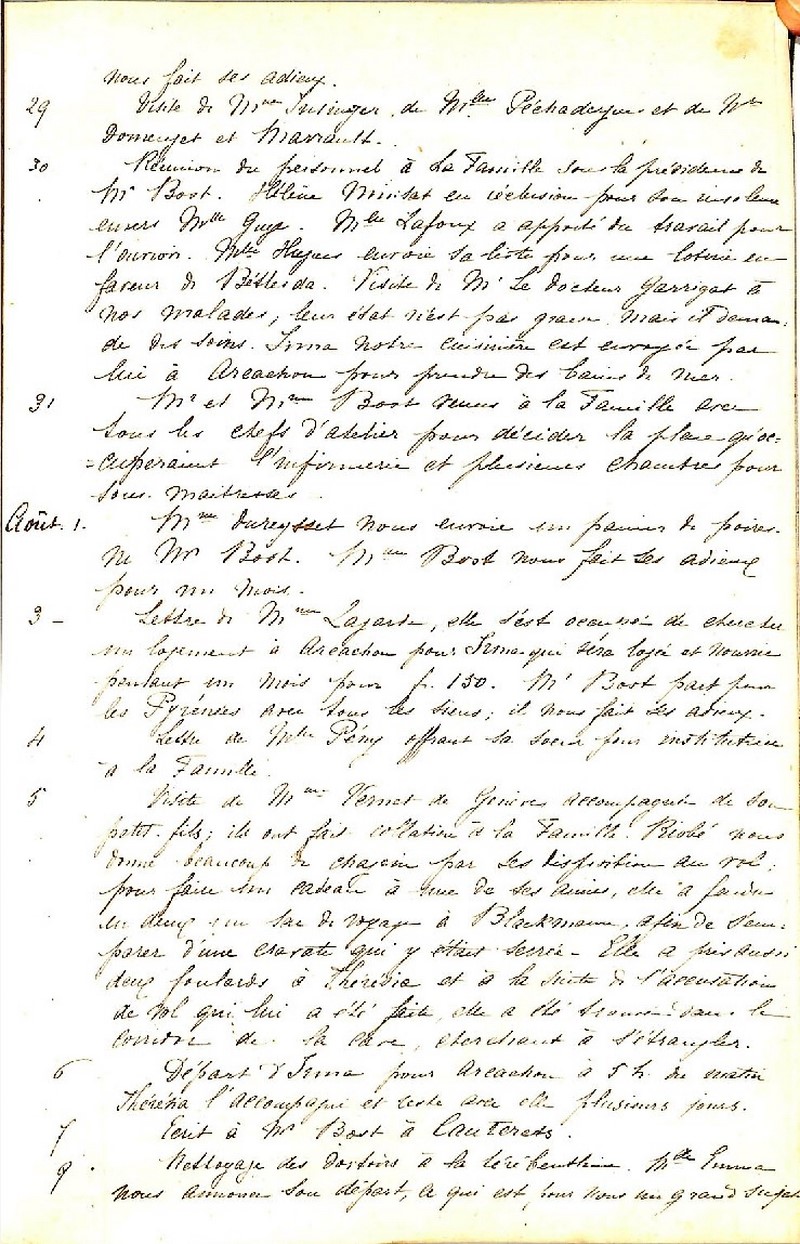 nous fait ses adieux.
29 Visite de Mme Insinger, de Mlle Péchadergue et de Mrs
Domenget et Marrault.
30 Réunion du personnel à La Famille sous la présidence de
Mr Bost. Hélène en réclusion pour son insolence
envers Mlle Guye. Mlle Lafoux a apporté du travail pour
l'ouvroir. Mlle Hugues envoie sa liste pour une loterie en
faveur de Béthesda. Visite de Mr Le docteur Garrigat à
nos malades; leur état n'est pas grave mais il deman-
de des soins. Irma notre cuisinière est envoyée par
lui à Arcachon pour prendre des bains de mer.
31 Mr et Mme Bost venus à la Famille avec
tous les chefs d'atelier pour décider la place qu'oc-
=cuperaient l'infirmerie et plusieurs chambres pour
sous-maitresses.
Août. 1. Mme Dureysset nous envoie un panier de poires.
ni Mr Bost. Mme Bost nous fait ses adieux
pour un mois.
3 - Lettre de Mme Lagarde, elle s'est occupée de chercher
un logement à Arcachon pour Irma qui sera logée et nourrie
pendant un mois pour fr. 130. Mr Bost part pour
les Pyrénées avec tous les siens; il nous fait ses adieux.
4 Lettre de Mlle Pény offrant sa soeur pour institutrice
à la Famille.
5 Visite de Mme Vernet de Genève accompagnée de son
petit-fils; ils ont fait collation à la Famille. nous
donne beaucoup de chagrin par ses disposition au vol;
pour faire un cadeau à une de ses amies, elle a fendu
en deux un sac de voyage à Blackmann, afin de s'em-
parer d'une cravate qui y était serrée - Elle a pris aussi
deux foulards à Thérésia et à la suite de l'accusation
de vol qui lui a été faite, elle a été trouvée dans le
corridor de la cave, cherchant à s'étrangler.
6 Départ d'Irma pour Arcachon à 5 h. du matin
Thérésia l'accompagne et reste avec elle plusieurs jours.
7 Ecrit à Mr Bost à Cauterets.
9. Nettoyage des dortoirs à la térébenthine. Mlle Emma
nous annonce son départ, ce qui est pour nous un grand sujet